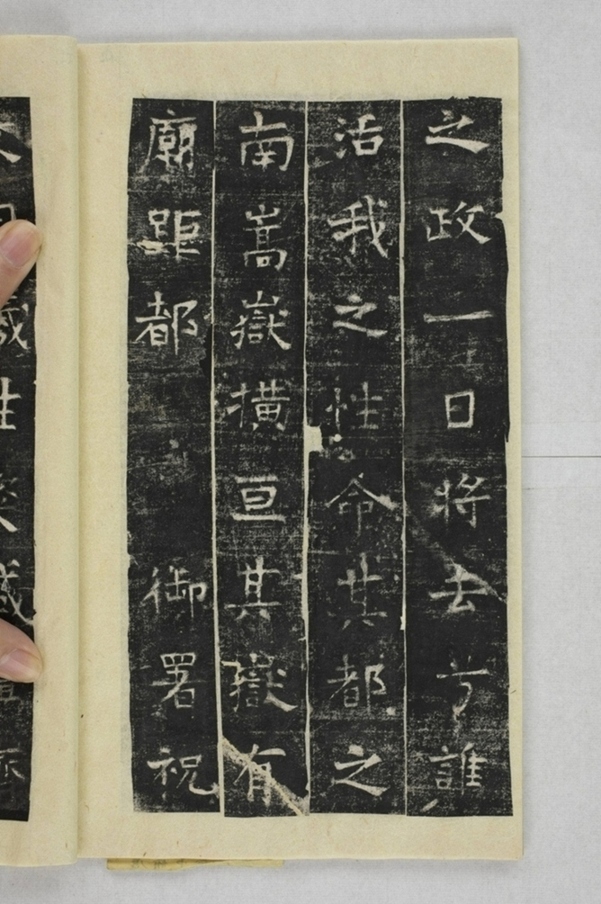 之政一日将去兮誰
活我之性命其都之
南嵩嶽横亘其嶽有
廟距都御署祝